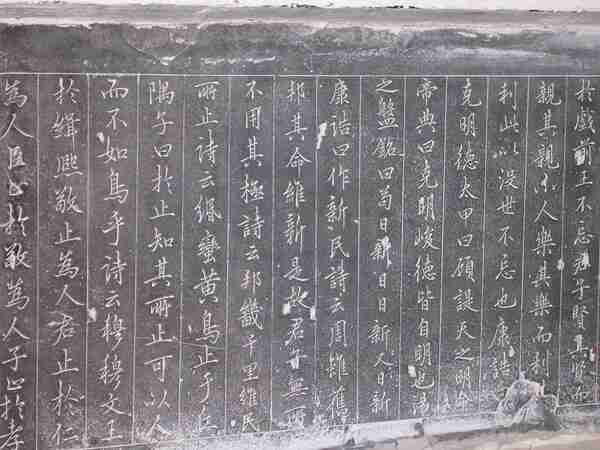 於戲前王不忘君子賢其賢而
親其親小人樂其樂而利
利此以沒世不忘也康誥曰
克明德太甲曰顧諟天之明命
帝典曰克明峻德皆自明也湯
之盤銘曰茍日新日日新又日新
康誥曰作新民詩云周雖舊
邦其命維新是故君子無所
不用其極詩云邦畿千里維民
所止詩云緡蠻黃鳥止于丘
隅子曰於止知其所止可以人
而不如鳥乎詩云穆穆文王
於緝熙敬止為人君止於仁
為人臣止於敬為人子止於孝